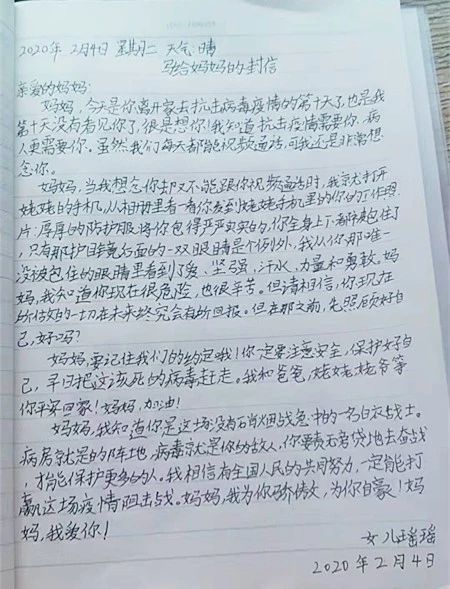 2020年2月4日 星期二 天气 晴
写给妈妈的封信
亲爱的妈妈:
妈妈,今天是你离开家去抗击病毒疫情的第十天了,也是我
第十天没有看见你了,很是想你!我知道抗击疫情需要你,病
人更需要你。虽然我们每天都能视频通话,可我还是非常想
念你。
妈妈,当我想念你却又不能跟你视频通话时,我就打开
姥姥的手机,从相册里看一看你发到姥姥手机里的你的工作照
片:厚厚的防护服将你包得严严实实的,你全身上下都被包住了
,只有那护目镜后面的一双眼睛是个例外,我从你那唯一
没被包住的眼睛里看到了爱、坚强、汗水、力量和勇敢。妈
妈,我知道你现在很危险,也很辛苦。但请相信,你现在
所付出的一切在未来终究会有所回报。但在那之前,先照顾好自
己,好吗?
妈妈,要记住我们的约定哦!你一定要注意安全,保护好自
己,早日把这该死的病毒赶走。我和爸爸,姥姥姥爷等
你平安回家!妈妈,加油!
妈妈,我知道你是这场没有硝烟战争中的一名白衣战士。
病房就是的阵地,病毒就是你的敌人,你要责无旁贷地去奋战
,才能保护更多的人。我相信有全国人民的共同努力,一定能打
赢这场疫情阻击战。妈妈,我为你骄傲,为你自豪!妈
妈,我爱你!
女儿瑶瑶
2020年2月4日